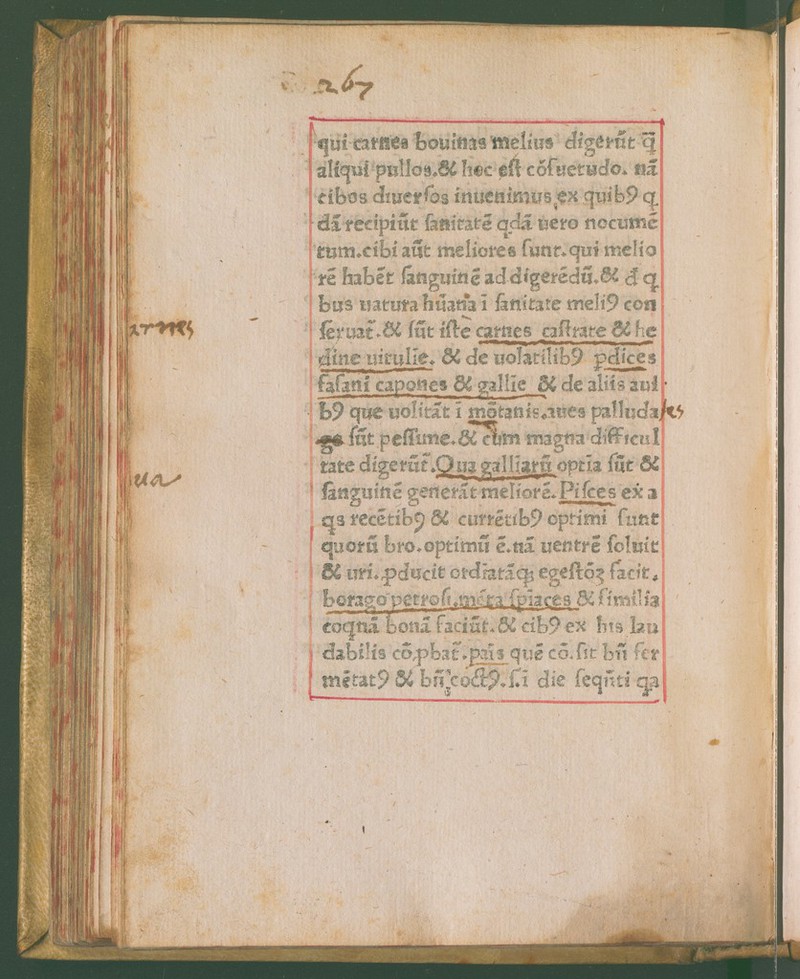 267
qui carnes bouinas melius digerūt q̄
aliqui pullos.& hec eſt cōſuetudo. nā
cibos diuerſos inuenimus ex quib9 q
dā recipiūt ſanitatē qdā uero nocumē
tum.cibi aūt meliores ſunt.qui melio
rē habēt ſanguinē ad digerēdū.& q
bus natura hūana i ſanitate meli9 con
ſeruat̄.& ſūt iſte carnes caſtrate & he
arnes
dine uitulie. & de uolatilib9 pdices
faſani capones & gallie & de aliis aui
b9 que uolitāt i mōtanis.aues palluda
les
ſūt peſſime.& cum magna difficul
tate digerūt.Oua galliarū optīa ſūt &
ua
ſanguinē generāt meliorē. Piſces ex a
qs recētib9 & currētib9 optimi ſunt
quorū bro.optimū ē.nā uentrē ſoluit
& uri.pducit ordīatāq; egeſtōꝫ facit.
borago petroſi.mēta ſpiaces & ſimilia
coqnā bonā faciūt.& cib9 ex his lau
dabilis cō.pbat̄.pais quē cō.ſit bn̄ fer
mētat9 & bn̄ coct9.ſi die ſeqn̄ti qa